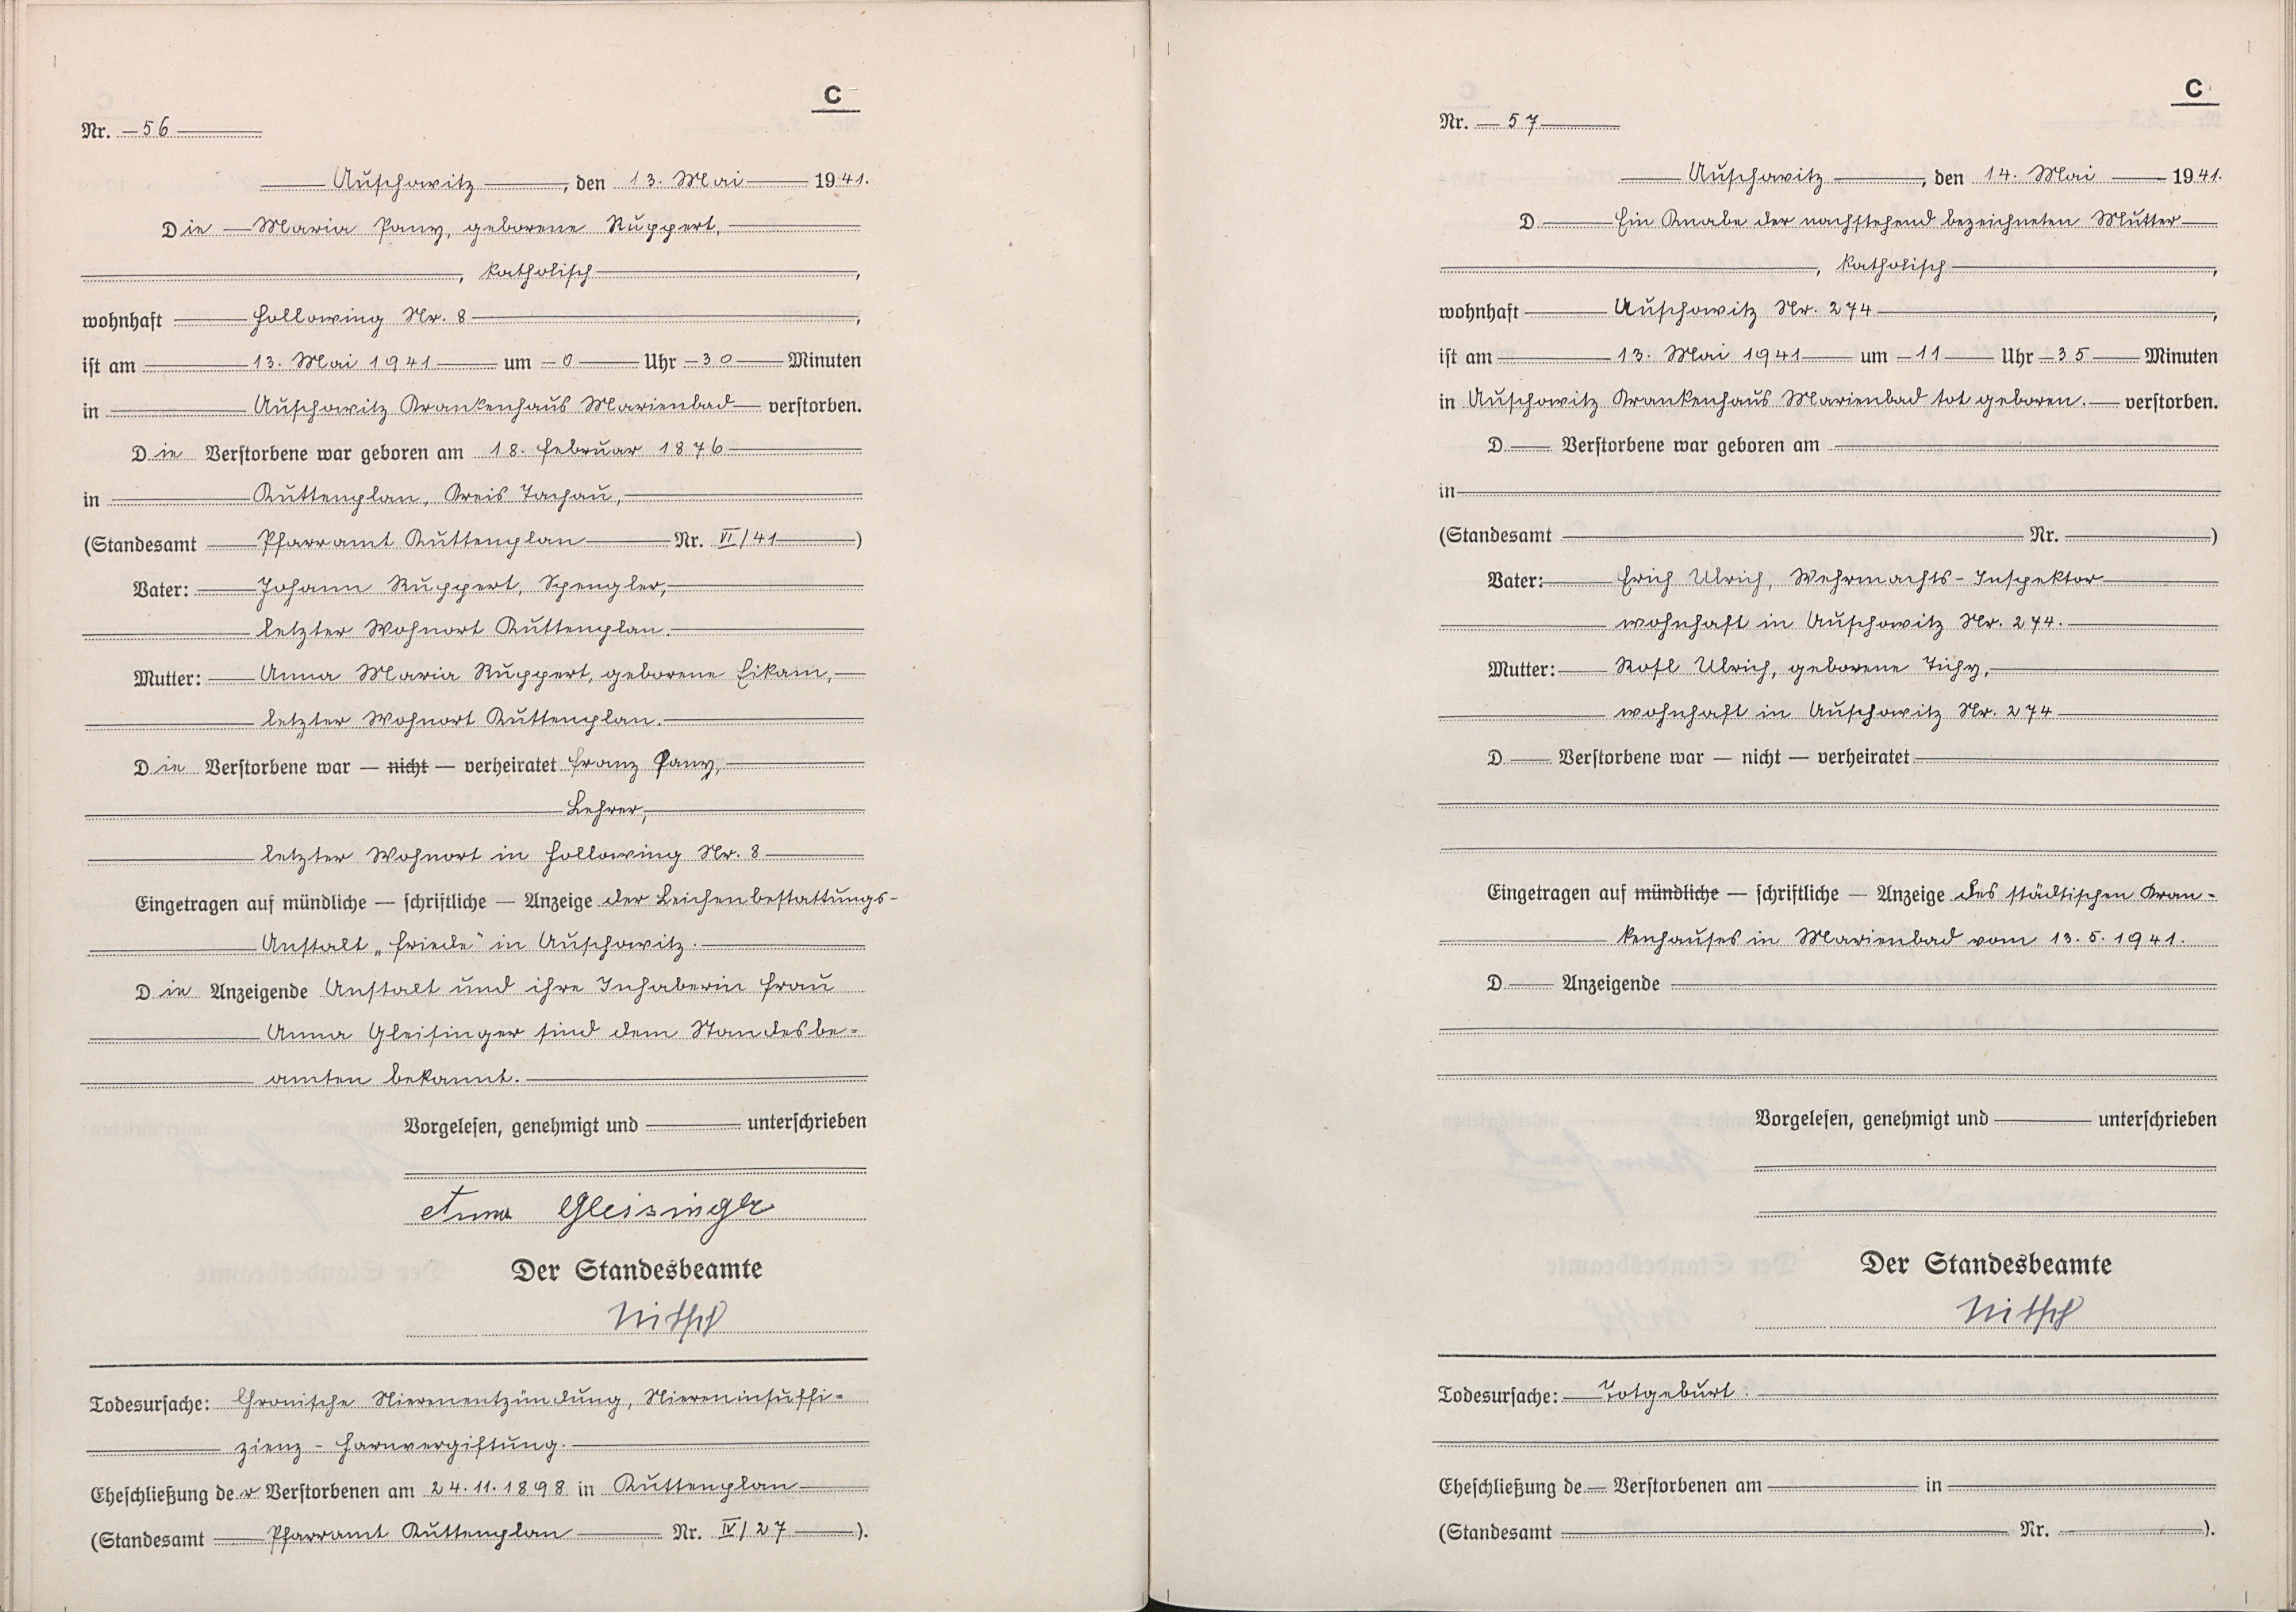 C
Nr. 56
Auschowitz, den 13. Mai 1941.
Die Maria Pany, geborene Ruppert,
, katholisch,
wohnhaft Hollowing Nr. 8,
ist am 13. Mai 1941 um 0 Uhr 30 Minuten
in Auschowitz Krankenhaus Marienbad verstorben.
Die Verstorbene war geboren am 18. Februar 1876
in Kuttenplan, Kreis Tachau,
(Standesamt Pfarramt Kuttenplan Nr. VI/41)
Vater: Johann Ruppert, Spengler,
letzter Wohnort Kuttenplan.
Mutter: Anna Maria Ruppert, geborene Eikam,
letzter Wohnort Kuttenplan.
Die Verstorbene war — nicht — verheiratet Franz Pany,
Lehrer,
letzter Wohnort in Hollowing Nr. 8
Eingetragen auf mündliche — schriftliche — Anzeige der Leichenbestattungs-
Anstalt „Friede" in Auschowitz.
Die Anzeigende Anstalt und ihre Inhaberin Frau
Anna Gleisinger sind dem Standesbe-
amten bekannt.
Vorgelesen, genehmigt und unterschrieben
Anna Gleisinger
Der Standesbeamte
Nitsch
Todesursache: Chronische Nierenentzündung, Niereninsuffi-
zienz - Harnvergiftung.
Eheschließung der Verstorbenen am 24.11.1898 in Kuttenplan
(Standesamt Pfarramt Kuttenplan Nr. IV/27).
C
Nr. 57
Auschowitz, den 14. Mai 1941.
D Ein Knabe der nachstehend bezeichneten Mutter
, katholisch,
wohnhaft Auschowitz Nr. 274,
ist am 13. Mai 1941 um 11 Uhr 35 Minuten
in Auschowitz Krankenhaus Marienbad tot geboren. verstorben.
D Verstorbene war geboren am
in
(Standesamt Nr. )
Vater: Erich Ulrich, Wehrmachts-Inspektor
wohnhaft in Auschowitz Nr. 274.
Mutter: Rosl Ulrich, geborene Tichy,
wohnhaft in Auschowitz Nr. 274
D Verstorbene war — nicht — verheiratet
Eingetragen auf mündliche — schriftliche — Anzeige des städtischen Kran-
kenhauses in Marienbad vom 13.5.1941.
D Anzeigende
Vorgelesen, genehmigt und unterschrieben
Der Standesbeamte
Nitsch
Todesursache: Totgeburt.
Eheschließung de Verstorbenen am in
(Standesamt Nr. ).